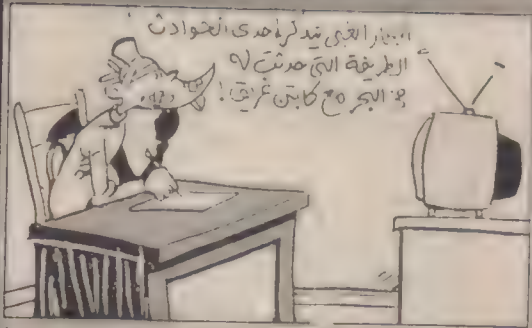 البحار الغبي يتذكر احدى الحوادث
الطريفة التي حدثت له
في البحر مع كابتن غريق!